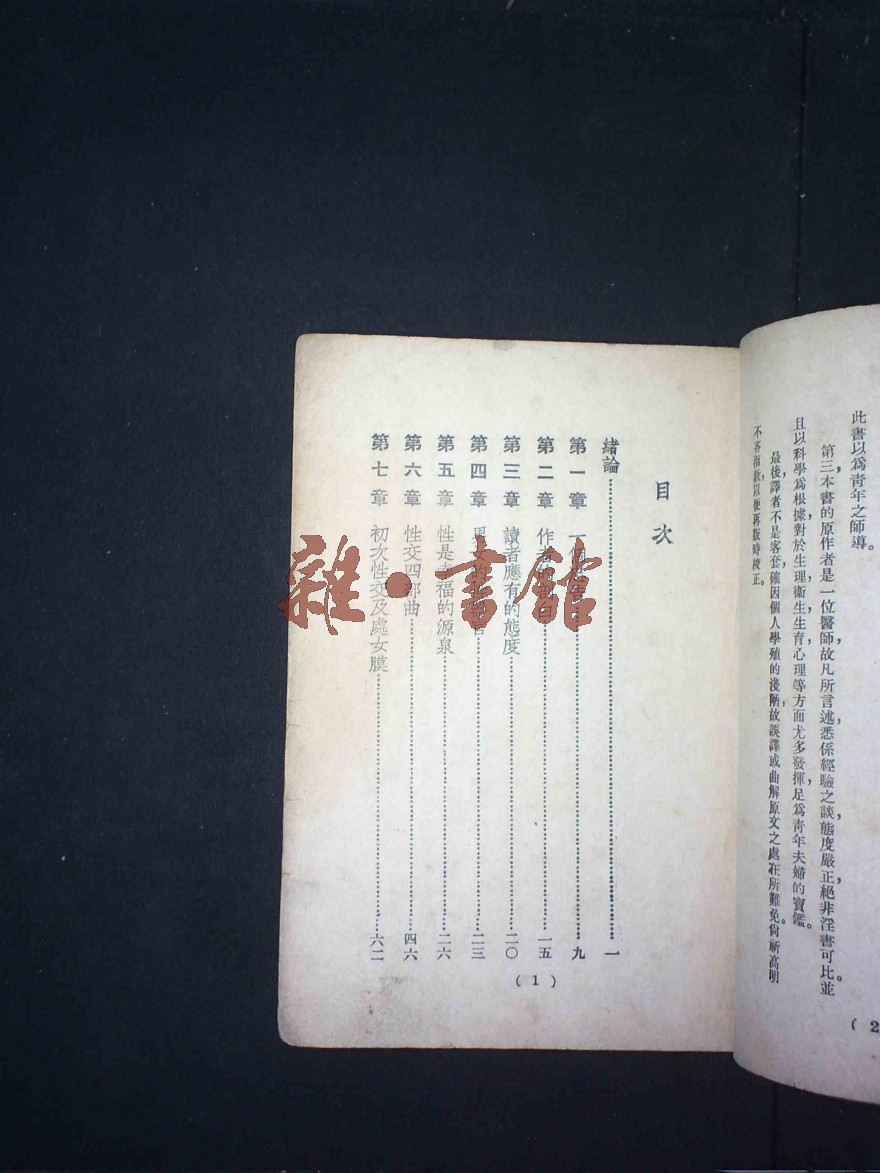 此書以爲靑年之師導。
第三本書的原作者是一位醫師,故凡所言述,悉係經驗之談,態度嚴正,絕非淫書可比。並
且以科學爲根據,對於生理,衞生,生育,心理等方面,尤多發揮,足爲靑年夫婦的寶鑑。
最後,譯者不是客套,確因個人學殖的淺陋,故誤譯或曲解原文之處,在所難免,尙祈高明
不吝指敎,以便再版時校正。
( 2
目次
緒論……………一
第一章 一個……………九
第二章 作者……………一五
第三章 讀者應有的態度……………二〇
第四章 男女的……………二三
第五章 性是幸福的源泉……………二六
第六章 性交四部曲……………四六
第七章 初次性交及處女膜……………六二
( 1 )
雜·書館